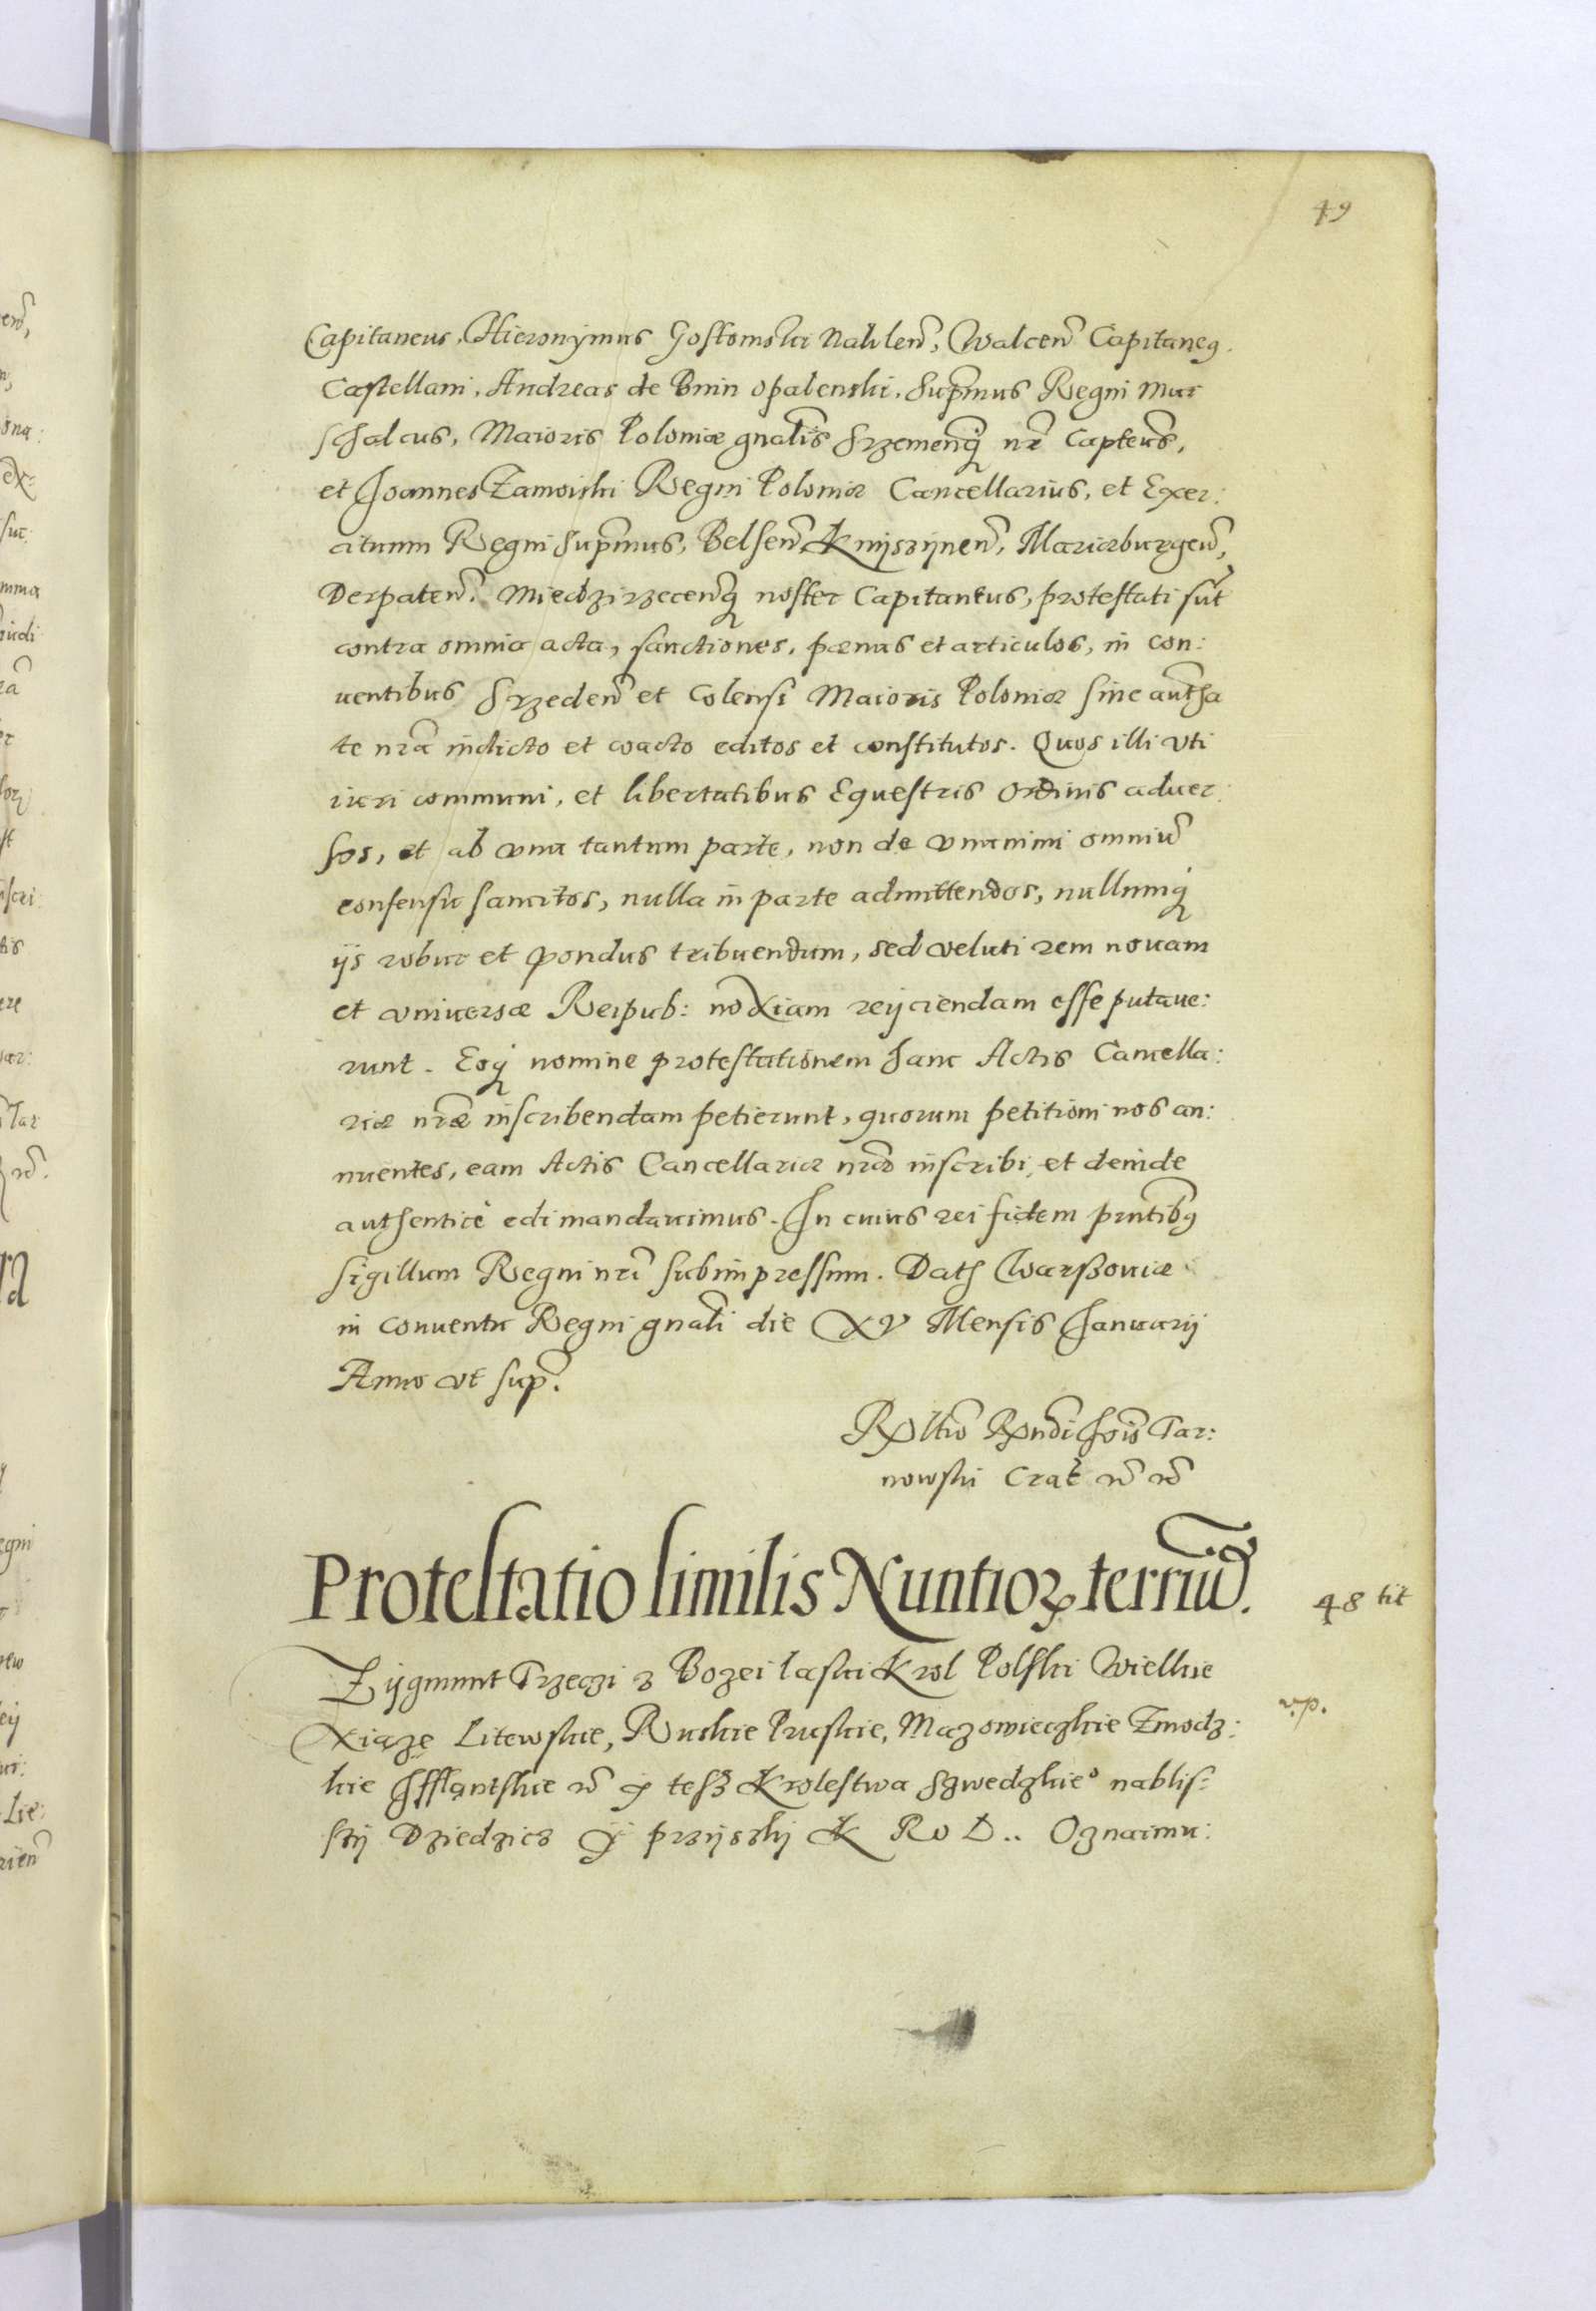 49
Capitaneus, Hieronymus Gostomski Naklen̄, Walcen̄ Capitaneꝰ.
Castellani, Andreas de Bnin Opalenski, Sup̄mus Regni Mar
schalcus, Maioris Poloniæ gn̄alis Srzemenq̨ nr̄ Capteus,
et Joannes Zamoiski Regni Poloniæ Cancellarius, et Exer:
cituum Regni Sup̄mus, Belsen̄, Knyszynen̄, Mariæburgen̄,
Derpaten̄. Miedzirzecenq̨ noster Capitaneus, protestati sūt
contra omnia acta, sanctiones, pænas et articulos, in con:
uentibus Srzeden̄ et Colensi Maioris Poloniæ sine autha
te nr̄a indicto et coacto editos et constitutos. Quos illi vti
iuri communi, et libertatibus Equestris Ordinis aduer:
sos, et ab vna tantum parte, non de vnanimi omniū
consensu sancitos, nulla in parte admittendos, nullumq̨
ijs robur et pondus tribuendum, sed veluti rem nouam
et vniuersæ Reipub: noxiam reijciendam esse putaue:
runt. Eoq̨ nomine protestationem hanc Actis Cancella:
riæ nr̄æ inscribendam petierunt, quorum petitioni nos an:
nuentes, eam Actis Cancellariæ nr̄æ inscribi, et deinde
authenticè edi mandauimus. In cuius rei fidem pn̄tibꝰ
sigillum Regni nr̄i subimpressum. Dath Warßouiæ
in conuentu Regni gn̄ali die XV Mensis Januarij
Anno vt sup̄.
Rx̄ltio Rx̄ndi Jois Tar:
nowski Crać etc̄ etc̄
Protestatio similis Nuntioꝝ terriū.
48 tit
Zijgmunt Trzeczi z Bozei łaski Krol Polski Wielkie
v.p.
Xiąze Litewskie, Ruskie Pruskie, Mazowieczkie Zmodz:
kie Jfflantskie etc̄ y tesz Krolestwa Szwedzkieº nablis:
szy Dziedzicz y przyszły K R o L.. Oznaimu: